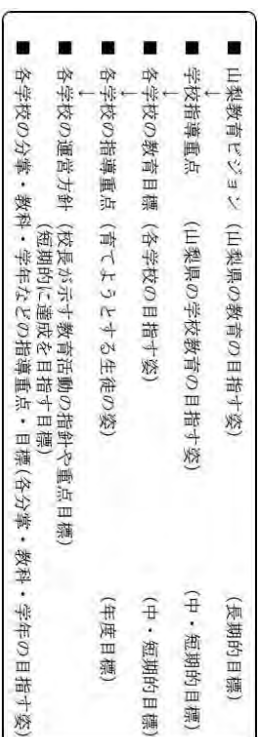 ■ 山梨教育ビジョン (山梨県の教育の目指す姿) (長期的目標)
↓
■ 学校指導重点 (山梨県の学校教育の目指す姿) (中・短期的目標)
↓
■ 各学校の教育目標 (各学校の目指す姿) (中・短期的目標)
↓
■ 各学校の指導重点 (育てようとする生徒の姿) (年度目標)
↓
■ 各学校の運営方針 (校長が示す教育活動の指針や重点目標)
(短期的に達成を目指す目標)
■ 各学校の分掌・教科・学年などの指導重点・目標(各分掌・教科・学年の目指す姿)